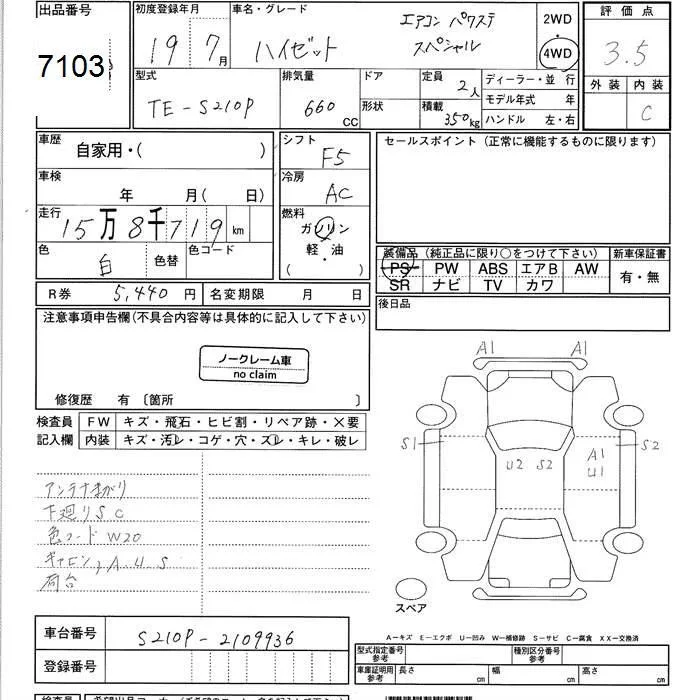 出品番号
7103
初度登録年月
19 7月
車名・グレード
ハイゼット
エアコン パワステ
スペシャル
2WD
・
4WD
評価点
3.5
外装 内装
C
型式
TE-S210P
排気量
660 CC
ドア
形状
定員 2人
積載 350kg
ディーラー・並 行
モデル年式 年
ハンドル 左・右
車歴 自家用・( )
シフト F5
セールスポイント (正常に機能するものに限ります)
車検 年 月(日)
冷房 AC
走行 15万8千719km
燃料
ガソリン
軽・油
( )
色 白 色替
色コード
装備品 (純正品に限り○をつけて下さい)
新車保証書
PS PW ABS エアB AW
SR ナビ TV カワ
有・無
R券 5,440円
名変期限 月 日
後日品
注意事項申告欄(不具合内容等は具体的に記入して下さい)
ノークレーム車
no claim
修復歴 有 〔箇所 〕
検査員
記入欄
FW キズ・飛石・ヒビ割・リペア跡・×要
内装 キズ・汚レ・コゲ・穴・スレ・キレ・破レ
アンテナまがり
下廻りSC
色コード W20
キャビン,A U S
荷台
A1 A1
S1 U2 S2 A1 U1 S2
スペア
A-キズ E-エクボ U-凹み W-補修跡 S-サビ C-腐食 XX-交換済
車台番号 S210P-2109936
登録番号
型式指定番号
参考
種別区分番号
参考
車庫証明用
参考
長さ cm 幅 cm 高さ cm